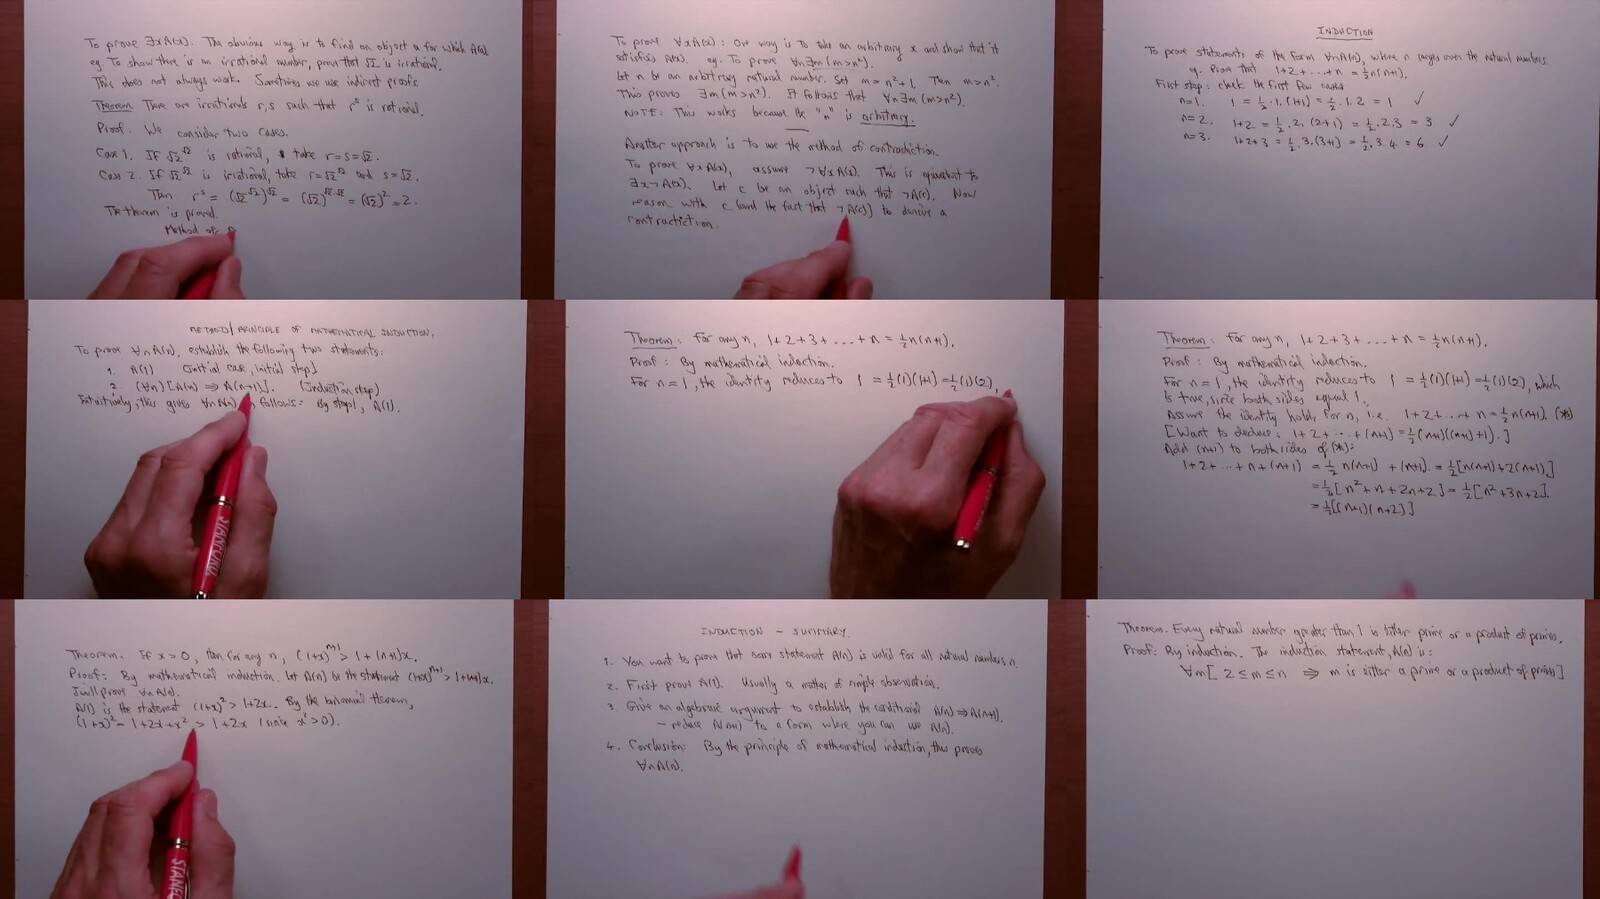 To prove ∃xA(x). The obvious way is to find an object a for which A(a)
eg. To show there is an irrational number, prove that √2 is irrational.
This does not always work. Sometimes we use indirect proofs
Theorem There are irrationals r,s such that r^s is rational.
Proof. We consider two cases.
Case 1. If √2^√2 is rational, take r=s=√2.
Case 2. If √2^√2 is irrational, take r=√2^√2 and s=√2.
Then r^s = (√2^√2)^√2 = (√2)^√2·√2 = (√2)^2 = 2.
The theorem is proved.
Method of
To prove ∀xA(x): One way is to take an arbitrary x and show that it
satisfies A(x). eg. To prove ∀n∃m(m>n²).
Let n be an arbitrary natural number. Set m = n²+1. Then m>n².
This proves ∃m(m>n²). It follows that ∀n∃m(m>n²).
NOTE: This works because the "n" is arbitrary.
Another approach is to use the method of contradiction.
To prove ∀xA(x), assume ¬∀xA(x). This is equivalent to
∃x¬A(x). Let c be an object such that ¬A(c). Now
reason with c (and the fact that ¬A(c)) to derive a
contradiction.
INDUCTION
To prove statements of the form ∀nA(n), where n ranges over the natural numbers
eg. Prove that 1+2+...+n = ½n(n+1).
First step: check the first few cases
n=1. 1 = ½.1.(1+1) = ½.1.2 = 1 ✓
n=2. 1+2 = ½.2.(2+1) = ½.2.3 = 3 ✓
n=3. 1+2+3 = ½.3.(3+1) = ½.3.4 = 6 ✓
METHOD/PRINCIPLE OF MATHEMATICAL INDUCTION.
To prove ∀nA(n), establish the following two statements:
1. A(1) (initial case, initial step)
2. (∀n)[A(n) ⇒ A(n+1)]. (Induction step)
Intuitively, this gives ∀nA(n) follows: By step 1, A(1).
Theorem: For any n, 1+2+3+...+n = ½n(n+1).
Proof: By mathematical induction.
For n=1, the identity reduces to 1 = ½(1)(1+1) = ½(1)(2),
Theorem: For any n, 1+2+3+...+n = ½n(n+1).
Proof: By mathematical induction.
For n=1, the identity reduces to 1 = ½(1)(1+1) = ½(1)(2), which
is true, since both sides equal 1.
Assume the identity holds for n, i.e. 1+2+...+n = ½n(n+1). (*)
[Want to deduce: 1+2+...+(n+1) = ½(n+1)((n+1)+1).]
Add (n+1) to both sides of (*):
1+2+...+n+(n+1) = ½n(n+1) + (n+1). = ½[n(n+1)+2(n+1)]
= ½[n²+n+2n+2] = ½[n²+3n+2].
= ½[(n+1)(n+2)]
Theorem. If x>0, then for any n, (1+x)^n+1 > 1+(n+1)x.
Proof: By mathematical induction. Let A(n) be the statement (1+x)^n+1 > 1+(n+1)x.
I will prove ∀nA(n).
A(1) is the statement (1+x)² > 1+2x. By the binomial theorem,
(1+x)² = 1+2x+x² > 1+2x (since x²>0).
INDUCTION - SUMMARY.
1. You want to prove that some statement A(n) is valid for all natural numbers n.
2. First prove A(1). Usually a matter of simple observation.
3. Give an algebraic argument to establish the conditional A(n)⇒A(n+1).
- reduce A(n+1) to a form where you can use A(n).
4. Conclusion: By the principle of mathematical induction, this proves
∀nA(n).
Theorem. Every natural number greater than 1 is either prime or a product of primes.
Proof: By induction. The induction statement, A(n) is:
∀m[2≤m≤n ⇒ m is either a prime or a product of primes]
STANFORD
STANFO